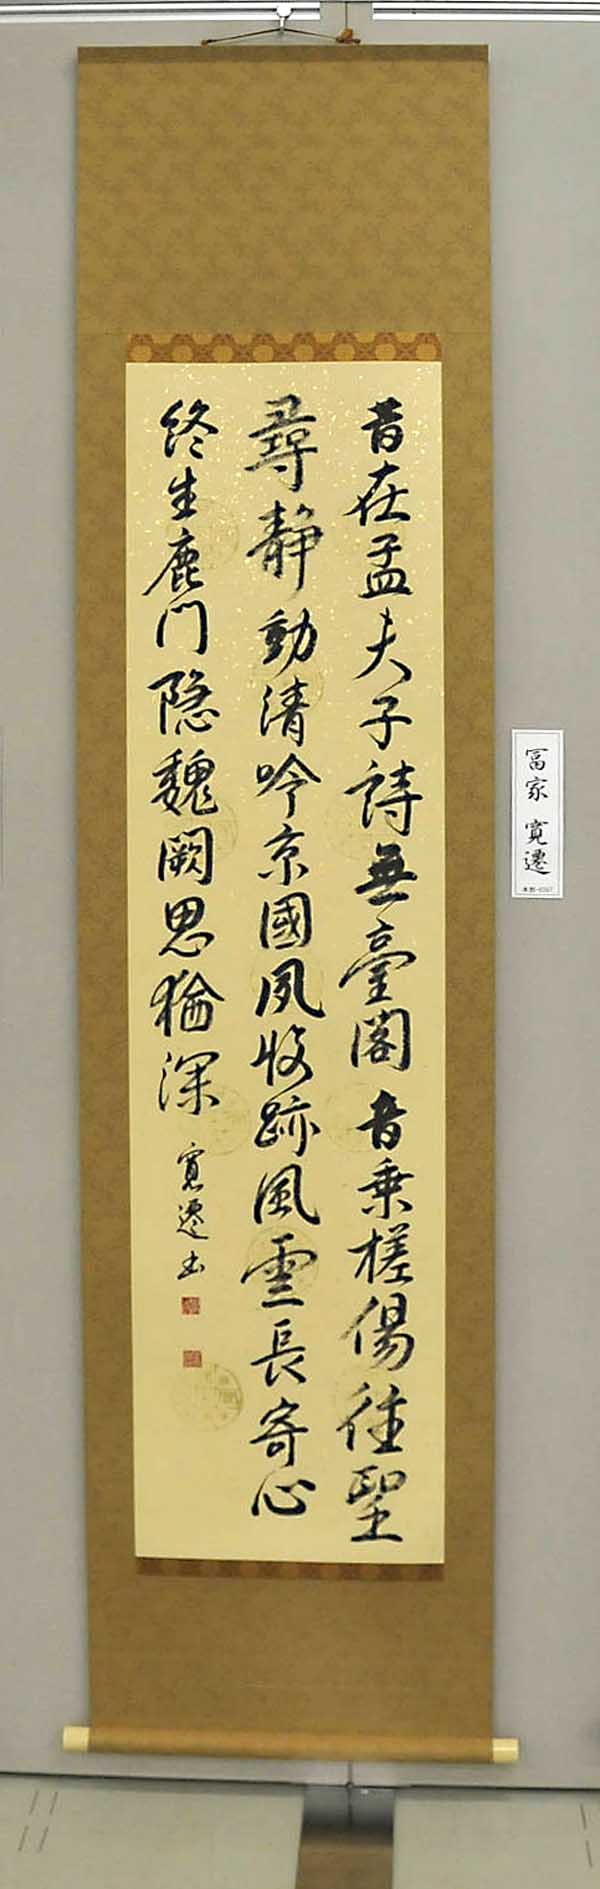 昔在孟夫子詩無臺閣音乗槎傷往聖
尋静動清吟京國夙收跡風雲長寄心
終生鹿門隠魏闕思猶深
寛遷書
冨家 寛遷